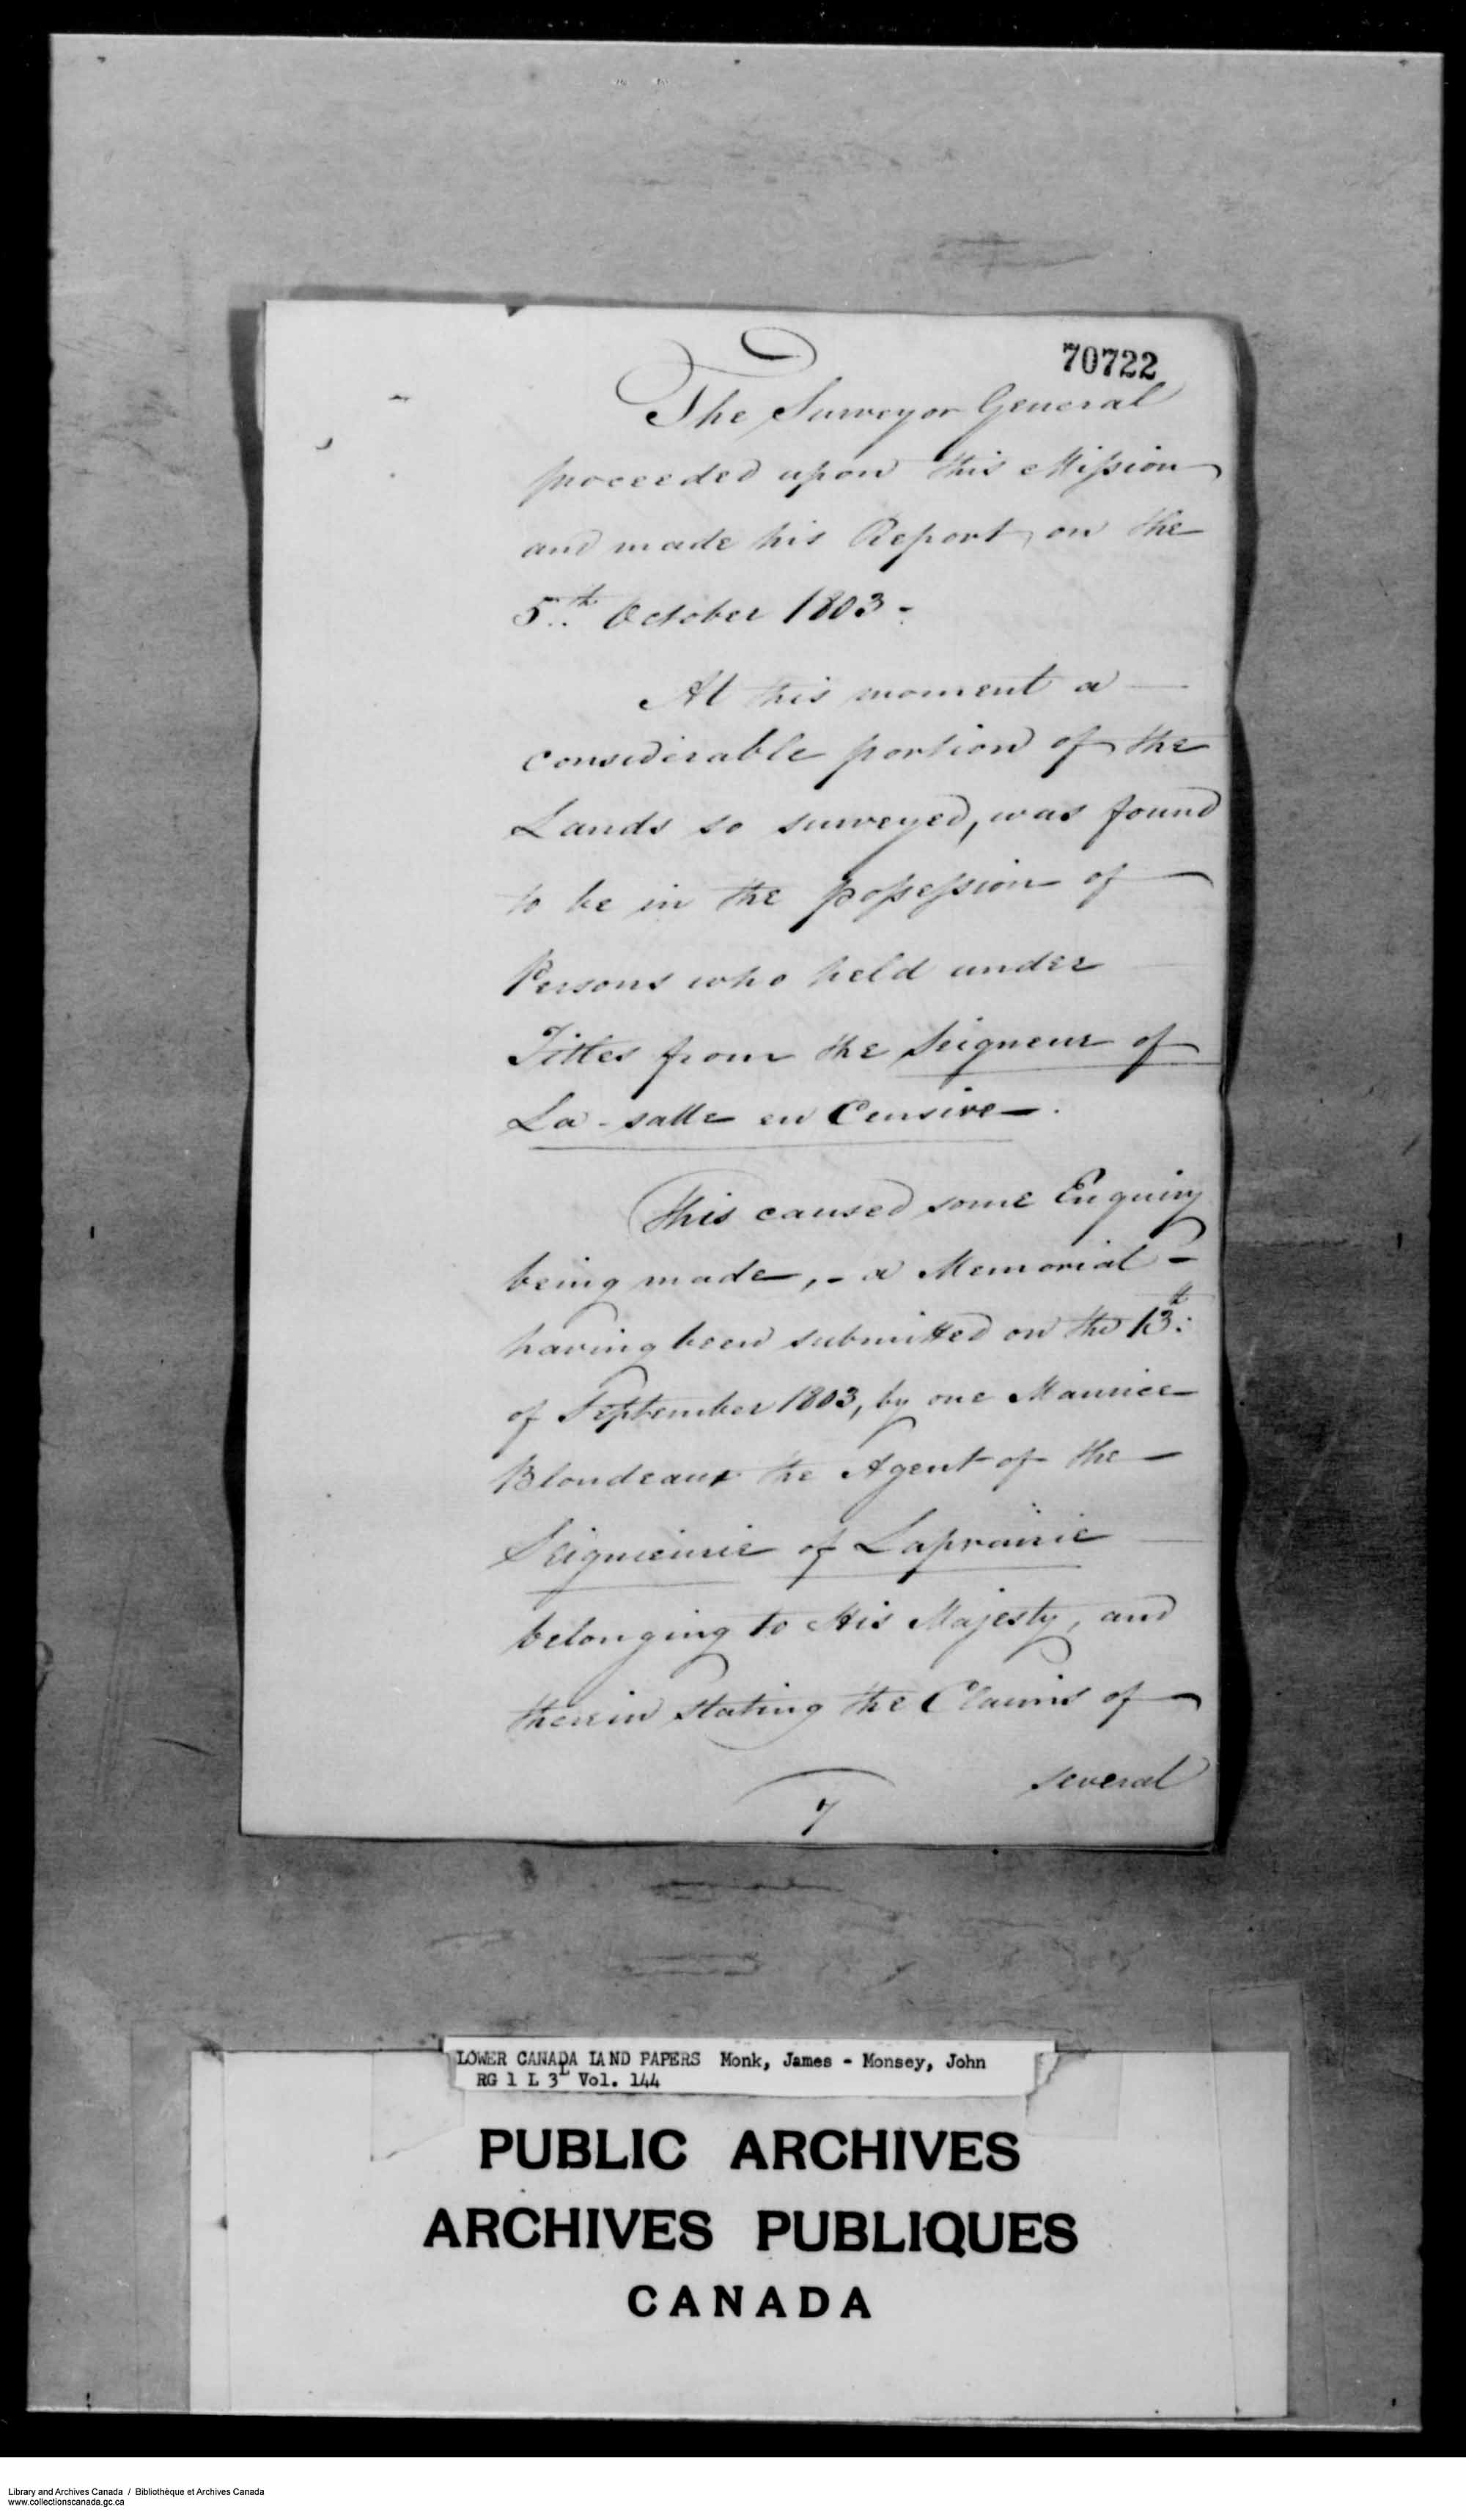 70722
The Surveyor General
proceeded upon this Mission
and made his Report, on the
5th October 1803 -
At this moment a
considerable portion of the
Lands so surveyed, was found
to be in the possession of
Persons who held under
Titles from the Seigneur of
La-salle en Censive.
This caused some Enquiry
being made, - a Memorial -
having been submitted on the 13th
of September 1803, by one Maurice
Blondeaux the Agent of the
Seigneurie of Laprairie
belonging to His Majesty, and
therein stating the Claims of
several
7
LOWER CANADA LAND PAPERS Monk, James - Monsey, John
RG 1 L 3L Vol. 144
PUBLIC ARCHIVES
ARCHIVES PUBLIQUES
CANADA
Library and Archives Canada / Bibliothèque et Archives Canada
www.collectionscanada.gc.ca